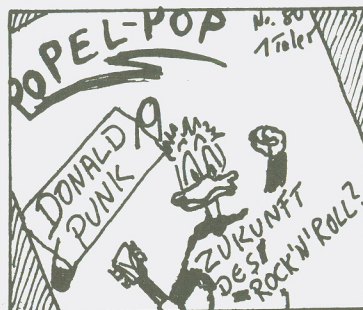 POPEL-POP
No. 80
1 Taler
DONALD
PUNK
ZUKUNFT
DES
ROCK'N'ROLL?